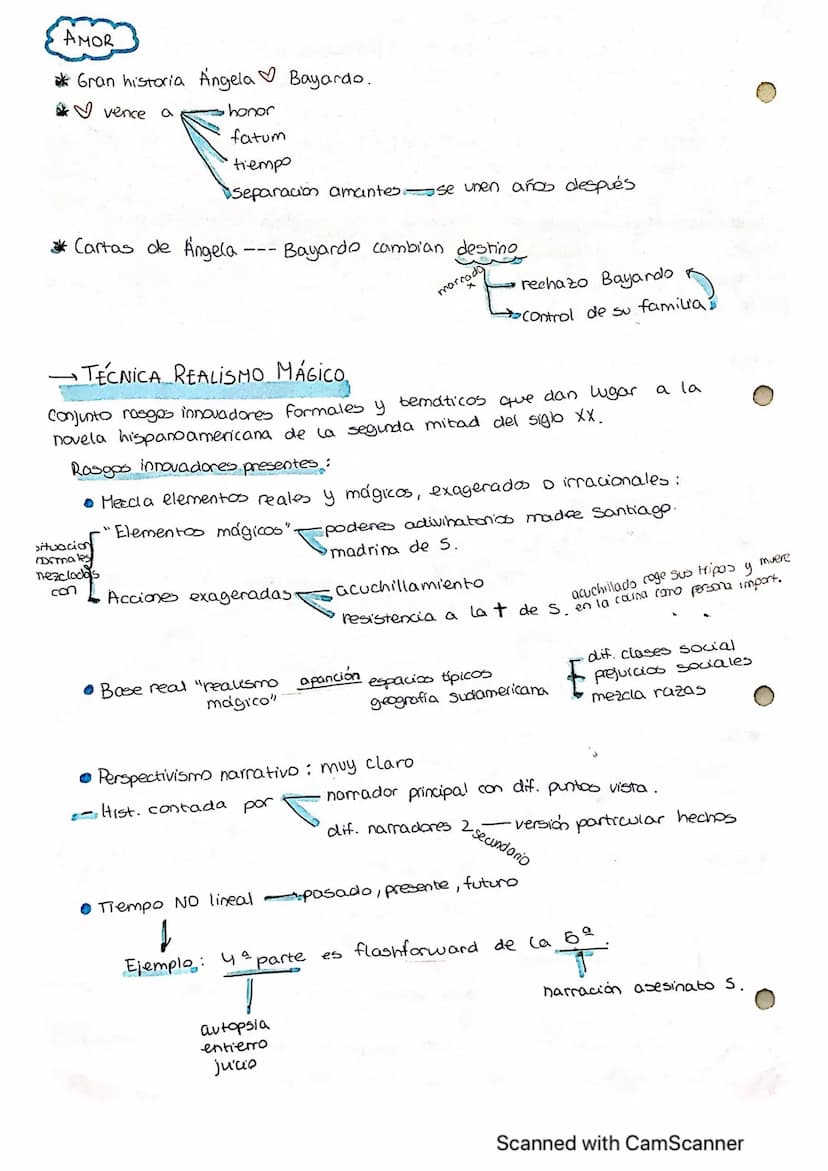 AMOR
* Gran historia Ángela ♡ Bayardo.
* ♡ vence a honor
fatum
tiempo
separación amantes — se unen años después
* Cartas de Ángela --- Bayardo cambian destino
marcado x
rechazo Bayardo
control de su familia
→ TÉCNICA REALISMO MÁGICO
Conjunto rasgos innovadores formales y temáticos que dan lugar a la
novela hispanoamericana de la segunda mitad del siglo XX.
Rasgos innovadores presentes:
• Mezcla elementos reales y mágicos, exagerados o irracionales:
situacion
normales
mezclados
con
"Elementos mágicos" poderes adivinatorios madre Santiago.
madrina de S.
Acciones exageradas acuchillamiento
resistencia a la † de S.
acuchillado coge sus tripas y muere
en la cocina como persona import.
• Base real "realismo
mágico"
aparición espacios típicos
geografía sudamericana
dif. clases social
prejuicios sociales
mezcla razas
• Perspectivismo narrativo: muy claro
— Hist. contada por narrador principal con dif. puntos vista.
dif. narradores 2 secundario — versión particular hechos
• Tiempo NO lineal → pasado, presente, futuro
Ejemplo: 4ª parte es flashforward de la 5ª.
narración asesinato S.
autopsia
entierro
juicio
Scanned with CamScanner